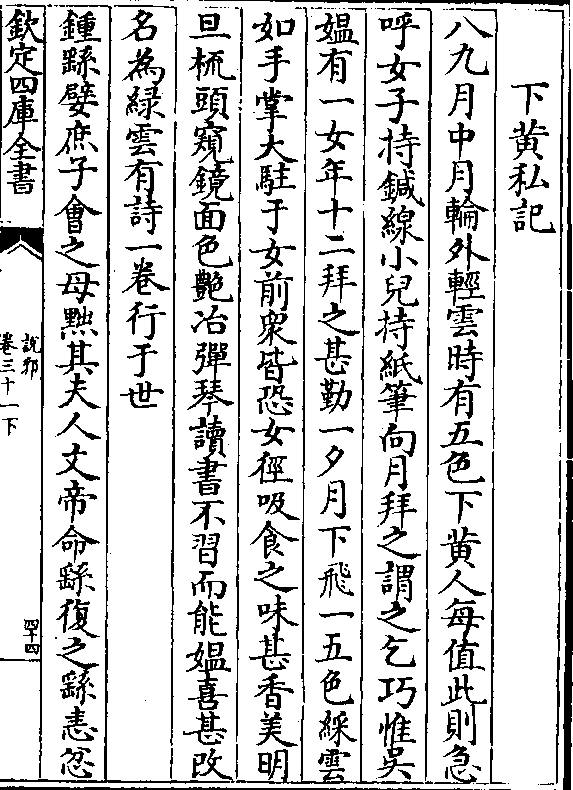 下黄私記
八九月中月輪外輕雲時有五色下黄人每值此則急
呼女子持鍼線小兒持紙筆向月拜之謂之乞巧惟吳
媪有一女年十二拜之甚勤一夕月下飛一五色綵雲
如手掌大駐于女前衆皆恐女徑吸食之味甚香美明
旦梳頭窺鏡面色艶冶彈琴讀書不習而能媪喜甚改
名為緑雲有詩一卷行于世
鍾繇嬖庶子會之母黜其夫人文帝命繇復之繇恚忿
欽定四庫全書
說郛
卷三十一下
四十四